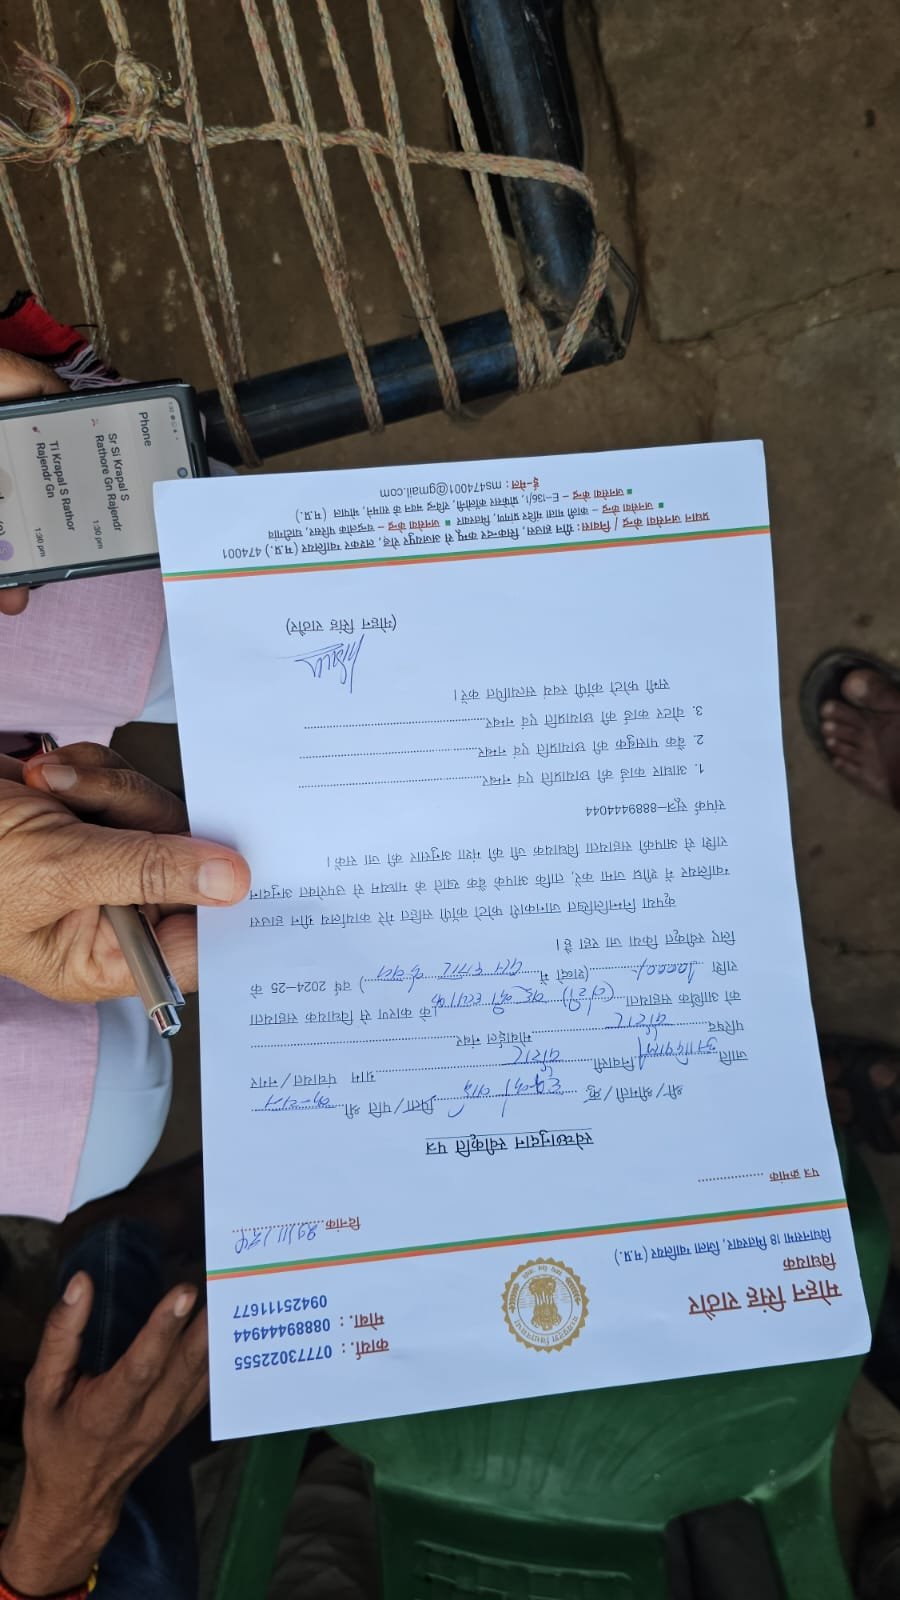 मोहन सिंह राठौर
विधायक
विधानसभा 18 भितरवार, जिला ग्वालियर (म.प्र.)
कार्या. : 07773022555
मोबा. : 08889444944
09425111677
पत्र क्रमांक ..................
दिनांक 29/11/24
स्वेच्छानुदान स्वीकृति पत्र
श्री/श्रीमती/कु. पिता/पति श्री
जाति निवासी ग्राम पंचायत/नगर
परिषद मोबाईल नंबर
को आर्थिक सहायता के कारण से विधायक सहायता
राशि 10000/- (शब्दों में दस हजार रू. मात्र) वर्ष 2024-25 के
लिए स्वीकृत किया जा रहा है।
कृपया निम्नलिखित जानकारी फोटो कॉपी सहित मेरे कार्यालय ग्रीन हाउस
ग्वालियर में शीघ्र जमा करें, ताकि आपके बैंक खाते के माध्यम से उपरोक्त अनुदान
राशि से आपकी सहायता विधायक जी की मंशा अनुसार की जा सके।
संपर्क सूत्र-8889444044
1. आधार कार्ड की छायाप्रति एवं नम्बर
2. बैंक पासबुक की छायाप्रति एवं नम्बर
3. वोटर कार्ड की छायाप्रति एवं नम्बर
सभी फोटो कॉपी स्वयं सत्यापित करें।
(मोहन सिंह राठौर)
प्रधान जनसेवा केन्द्र / निवास: ग्रीन हाउस, सिकन्दर कम्पू से अजयपुर रोड, लश्कर ग्वालियर (म.प्र.) 474001
▪ जनसेवा केन्द्र – काली माता मंदिर प्रांगण, भितरवार ▪ जनसेवा केन्द्र – परिसर, घाटीगांव
▪ जनसेवा केन्द्र – E-136/1, प्रोफेसर कॉलोनी, रविन्द्र भवन के सामने, भोपाल (म.प्र.)
ई-मेल : ms474001@gmail.com
Phone
Sr Si Krapal S
Rathore Gn Rajendr
1:30 pm
Ti Krapal S Rathor
Rajendr Gn
1:30 pm